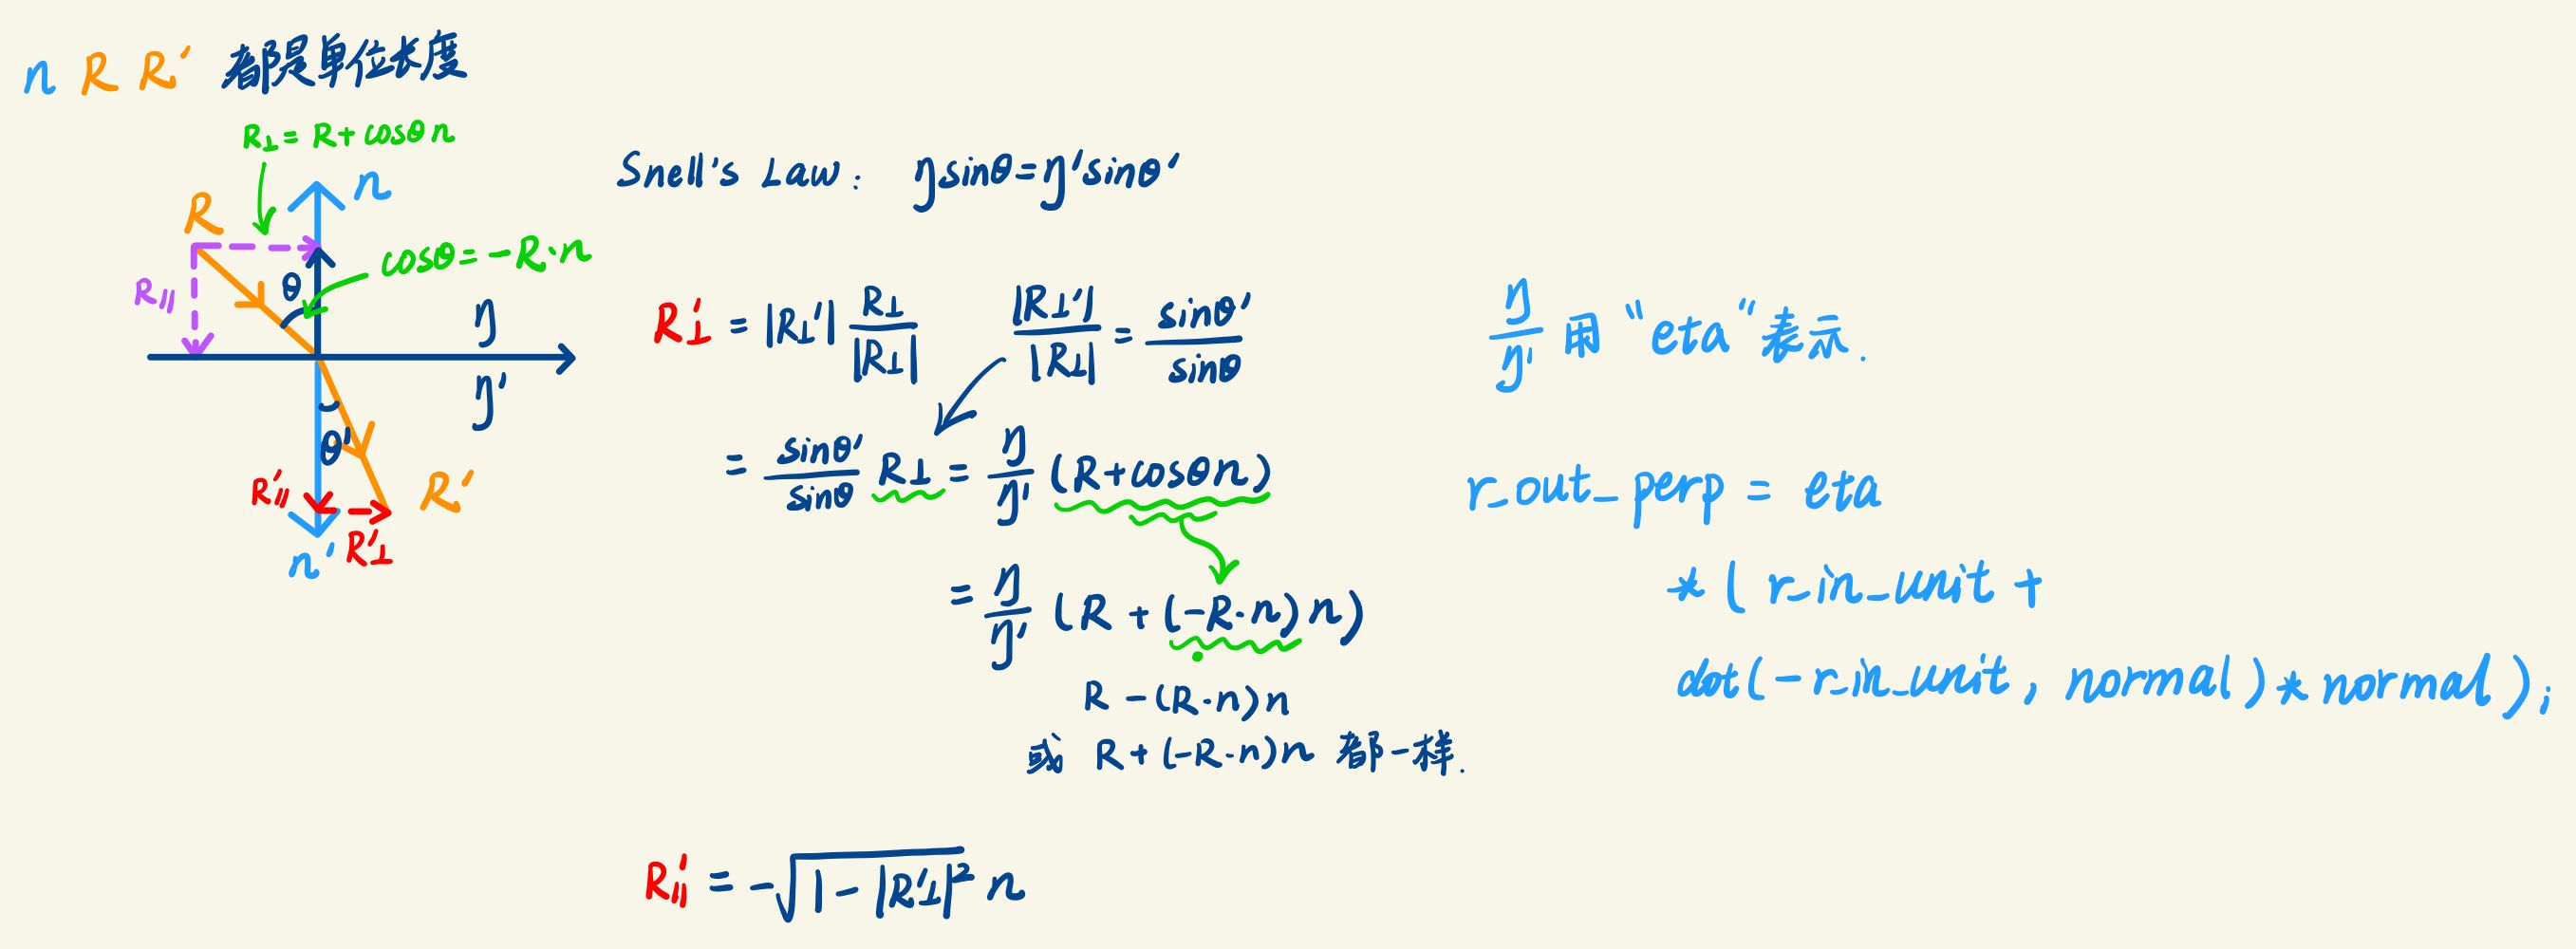 n R R′ 都是单位长度
R⊥ = R + cosθ n
n
R
cosθ = -R·n
R//
θ
η
η′
θ′
R′//
R′
n′
R′⊥
Snell's Law: ηsinθ = η′sinθ′
R′⊥ = |R⊥′| R⊥/|R⊥|    |R⊥′|/|R⊥| = sinθ′/sinθ
= sinθ′/sinθ R⊥ = η/η′ (R + cosθ n)
= η/η′ (R + (-R·n) n)
R - (R·n) n
或 R + (-R·n) n 都一样.
R′// = -√(1 - |R′⊥|²) n
η/η′ 用 "eta" 表示.
r_out_perp = eta
* ( r_in_unit +
dot(-r_in_unit, normal) * normal);